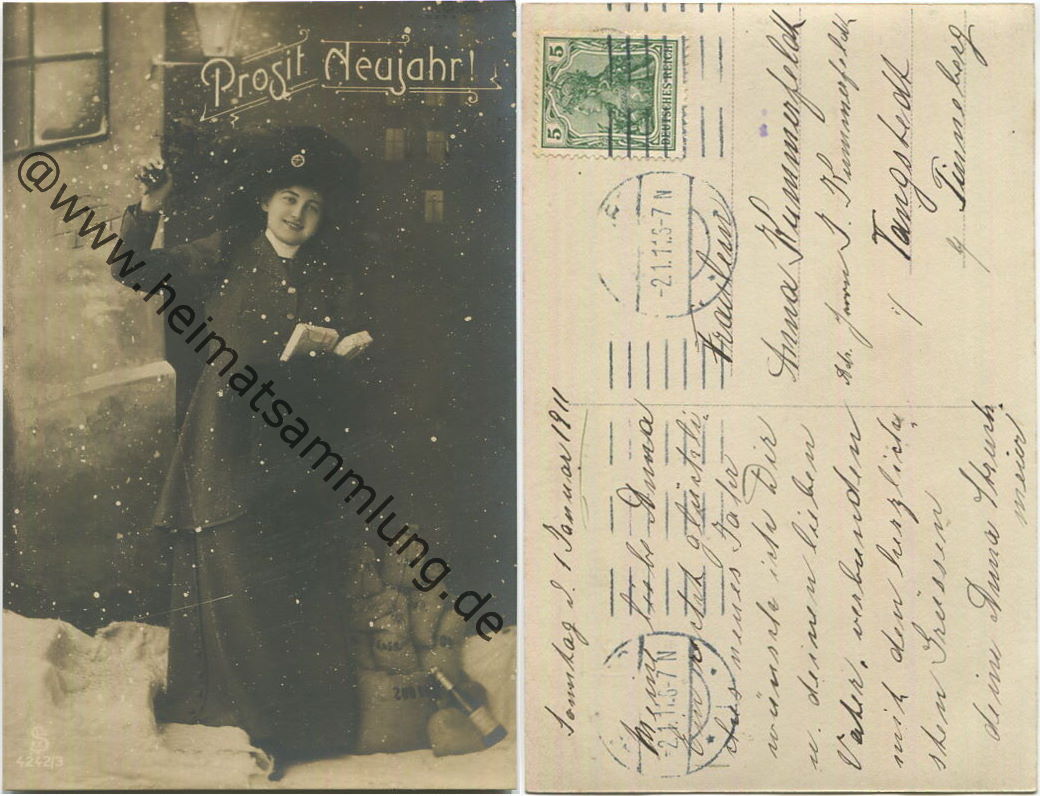 Prosit Neujahr!
@www.heimatsammlung.de
200
4242/3
5 5
DEUTSCHES REICH
-2.1.11.6-7 N
Fräulein
Anna Kummerfeldt
Adr. Herrn J. Kummerfeldt
Tangstedt
b/ Pinneberg
Sonntag d. 1 Januar 1911
Meine liebe Anna
Ein rechtes glückli-
ches neues Jahr
wünsch ich Dir
u. deinen lieben
Vater, verbunden
mit den herzlich-
sten Grüssen
deine Anna
meier
-2.1.11.6-7 N